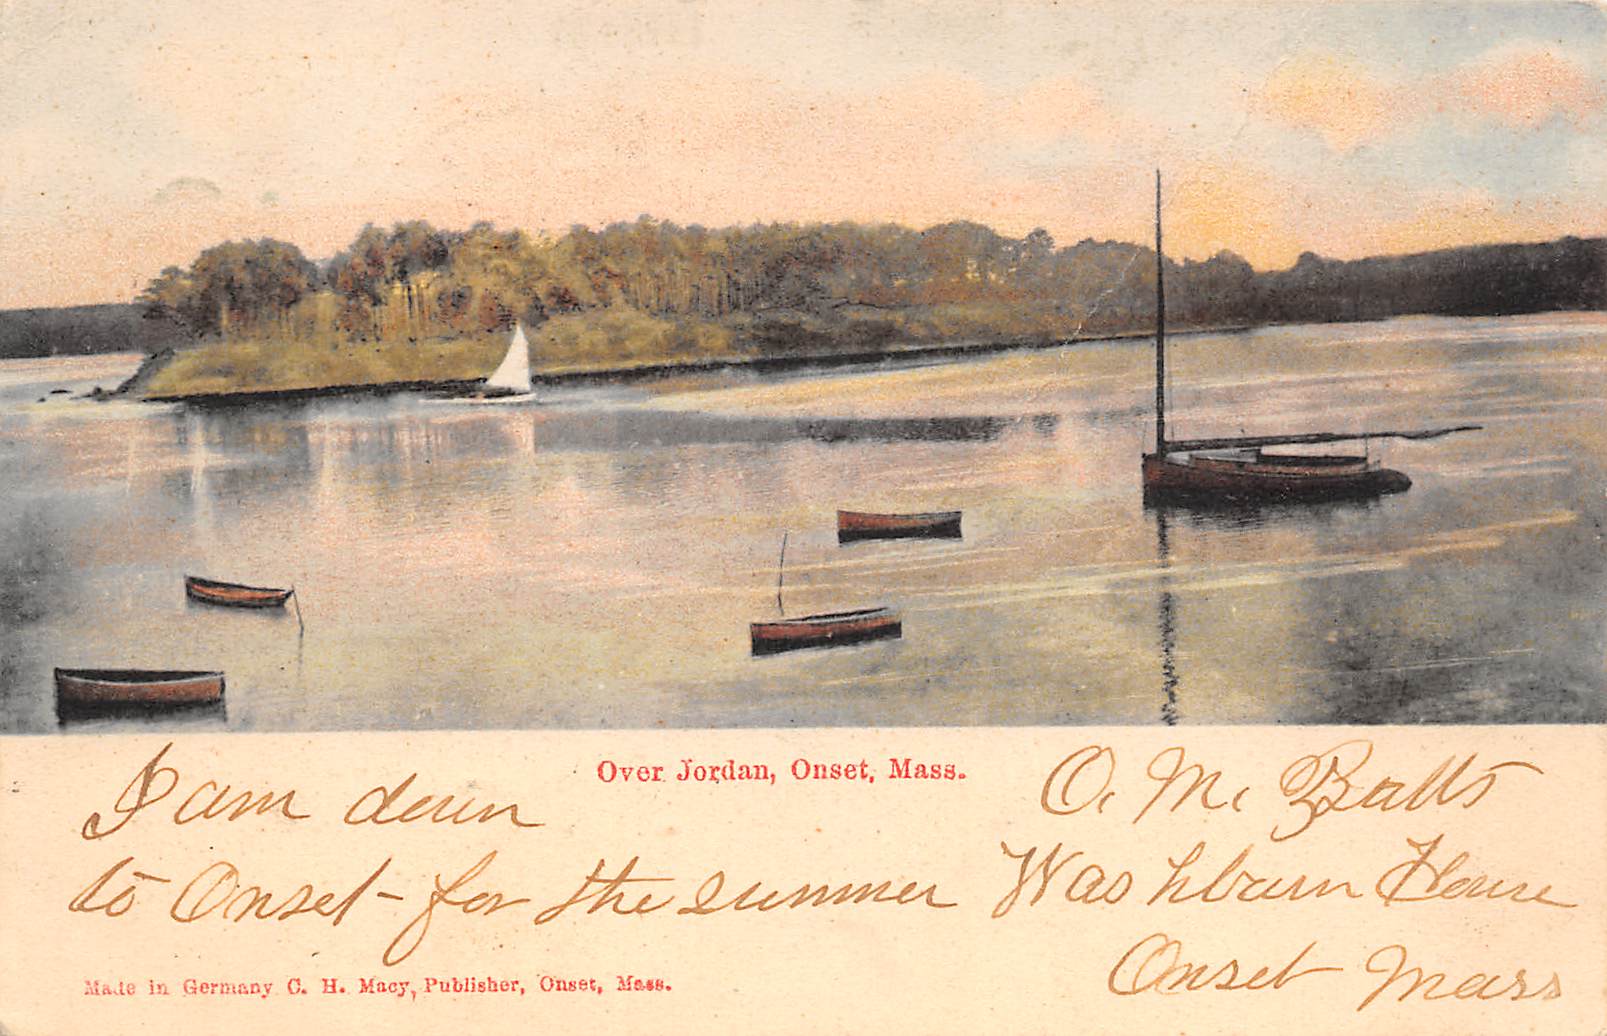 Over Jordan, Onset, Mass.
I am down
to Onset - for the summer
O. M. Batts
Washburn House
Onset Mass
Made in Germany C. H. Macy, Publisher, Onset, Mass.